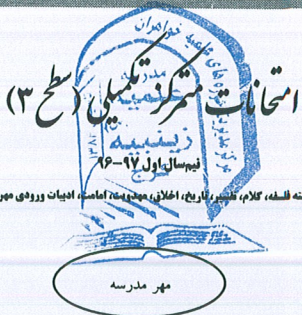 امتحانات متمرکز تکمیلی (سطح ۳)
نیم‌سال اول ۹۷-۹۶
ته فلسفه، کلام، تفسیر، تاریخ، اخلاق، مهدویت، امامت، ادبیات ورودی مهر
مهر مدرسه
مدرسه
علمیه
زینبیه